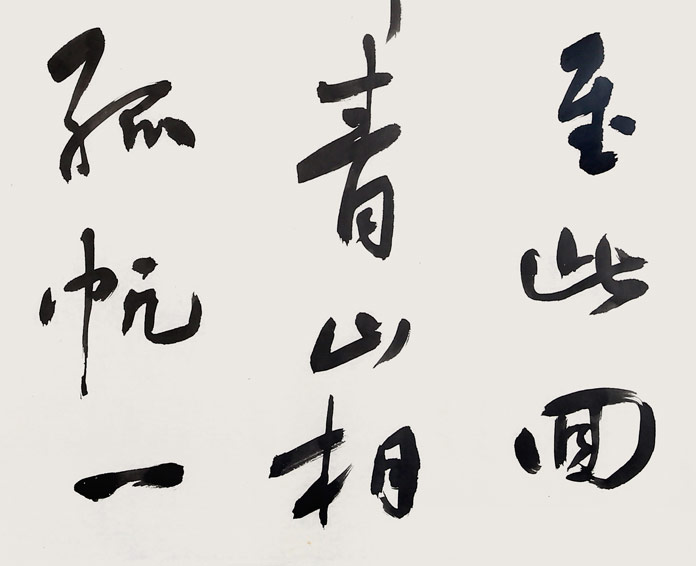 至此回
青山相
孤帆一